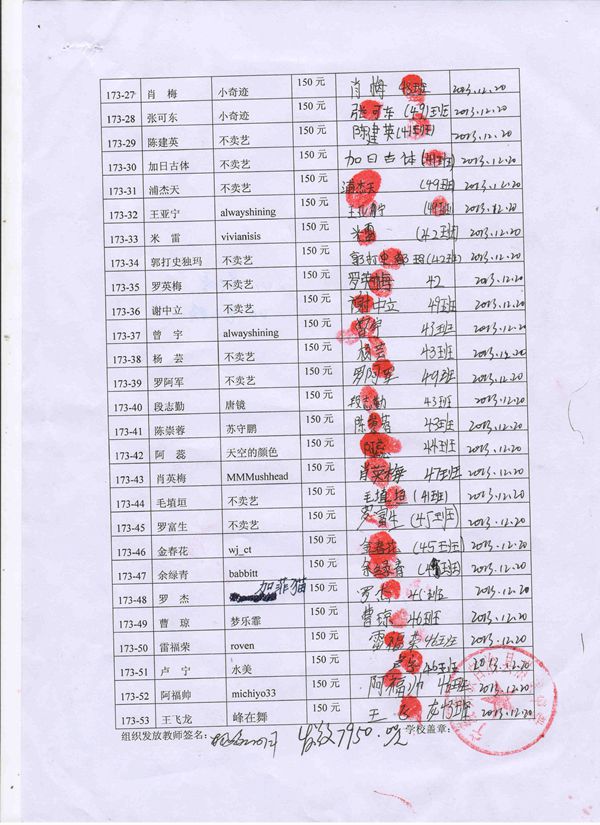 173-27 肖 梅 小奇迹 150 元 肖梅 48班 2013.12.20
173-28 张可东 小奇迹 150 元 张可东 (49)班 2013.12.20
173-29 陈建英 不卖艺 150 元 陈建英 (41班) 2013.12.20
173-30 加日古体 不卖艺 150 元 加日古体 2013.12.20
173-31 浦杰天 不卖艺 150 元 浦杰天 (49班) 2013.12.20
173-32 王亚宁 alwayshining 150 元 王亚宁 2013.12.20
173-33 米 雷 vivianisis 150 元 米雷 (42班) 2013.12.20
173-34 郭打史独玛 不卖艺 150 元 郭打史独玛 (42班) 2013.12.20
173-35 罗英梅 不卖艺 150 元 罗英梅 42 2013.12.20
173-36 谢中立 不卖艺 150 元 谢中立 49班 2013.12.20
173-37 曾 宇 alwayshining 150 元 曾宇 43班 2013.12.20
173-38 杨 芸 不卖艺 150 元 杨芸 43班 2013.12.20
173-39 罗阿军 不卖艺 150 元 罗阿军 49班 2013.12.20
173-40 段志勤 唐镜 150 元 段志勤 43班 2013.12.20
173-41 陈崇蓉 苏守鹏 150 元 陈崇蓉 43班 2013.12.20
173-42 阿 蕊 天空的颜色 150 元 阿蕊 44班 2013.12.20
173-43 肖英梅 MMMushhead 150 元 肖英梅 47班 2013.12.20
173-44 毛埴垣 不卖艺 150 元 毛埴垣 (41班) 2013.12.20
173-45 罗富生 不卖艺 150 元 罗富生 (45班) 2013.12.20
173-46 金春花 wj_ct 150 元 金春花 (45班) 2013.12.20
173-47 余绿青 babbitt 150 元 余绿青 2013.12.20
173-48 罗 杰 加菲猫 150 元 罗杰 2013.12.20
173-49 曹 琼 梦乐霏 150 元 曹琼 46班 2013.12.20
173-50 雷福荣 roven 150 元 雷福荣 46班 2013.12.20
173-51 卢 宁 水美 150 元 卢宁 46班 2013.12.20
173-52 阿福帅 michiyo33 150 元 阿福帅 46班 2013.12.20
173-53 王飞龙 峰在舞 150 元 王飞龙 43班 2013.12.20
组织发放教师签名： 7950.00元 学校盖章：